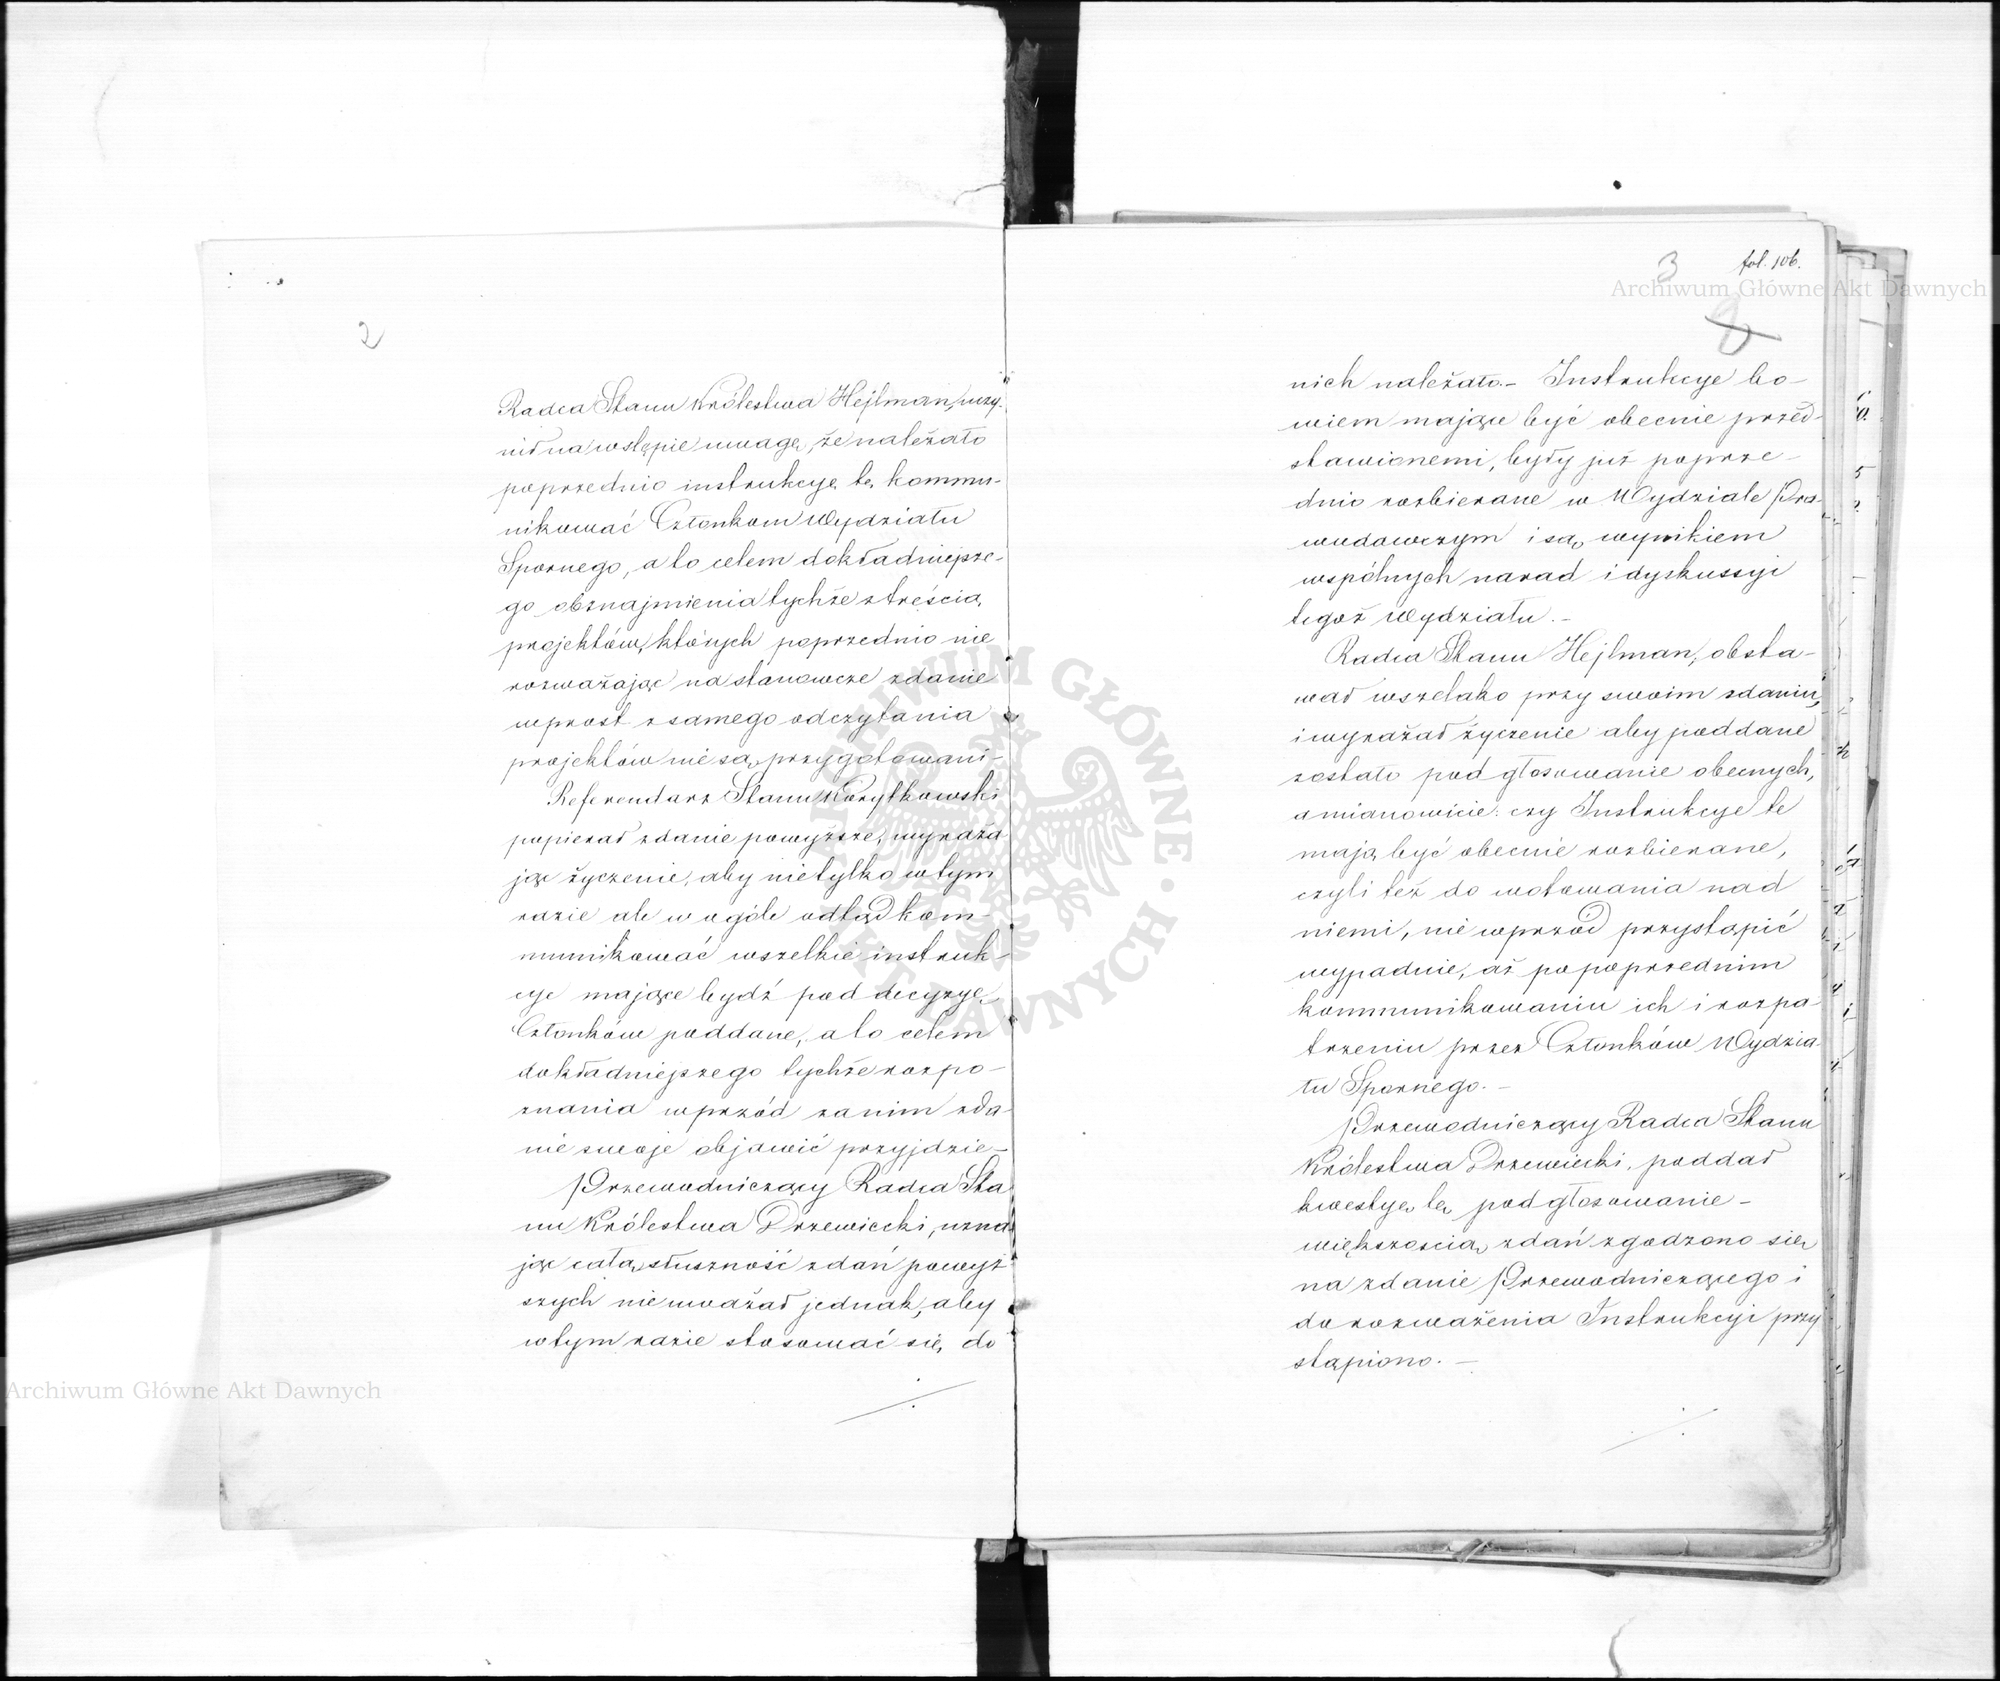 2
Radca Stanu Królestwa Hejlman, uczy-
nił na wstępie uwagę, że należało
poprzednio instrukcye te kommu-
nikować Członkom Wydziału
Spornego, a to celem dokładniejsze-
go obznajmienia tychże z treścią
projektów, których poprzednio nie
rozważając na stanowcze zdanie
wprost z samego odczytania
projektów nie są przygotowani-
Referendarz Stanu Korytkowski
popierał zdanie powyższe, wyraża
jąc życzenie, aby nietylko w tym
razie ale w ogóle odtąd kom-
munikować wszelkie instruk-
cye mające bydź pod decyzyę
Członków poddane, a to celem
dokładniejszego tychże rozpo-
znania wprzód zanim zda-
nie swoje objawić przyjdzie-
Przewodniczący Radca Sta
nu Królestwa Drzewiecki, uzna
jąc całą słuszność zdań powyż
szych nie uważał jednak, aby
w tym razie stosować się do
3 fol. 106.
8
nich należało.- Instrukcye bo-
wiem mające być obecnie przed-
stawionemi, były już poprze-
dnio rozbierane w Wydziale Pra-
wodawczym i są wynikiem
wspólnych narad i dyskussyi
tegoż Wydziału.-
Radca Stanu Hejlman, obsta-
wał wszelako przy swoim zdaniu,
i wyrażał życzenie aby poddane
zostało pod głosowanie obecnych,
a mianowicie: czy Instrukcye te
mają być obecnie rozbierane,
czyli też do wotowania nad
niemi, nie wprzód przystąpić
wypadnie, aż po poprzednim
kommunikowaniu ich i rozpa-
trzeniu przez Członków Wydzia-
łu Spornego.-
Przewodniczący Radca Stanu
Królestwa Drzewiecki, poddał
kwestyę tę pod głosowanie-
większością zdań zgodzono się
na zdanie Przewodniczącego i
do rozważenia Instrukcyi przy
stąpiono.-
Archiwum Główne Akt Dawnych
ARCHIWUM GŁÓWNE AKT DAWNYCH
Archiwum Główne Akt Dawnych